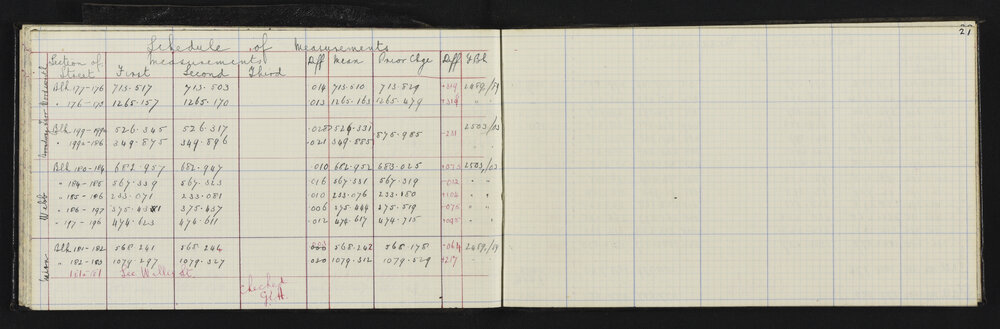 27
Schedule of Measurements
Section of Street Measurements Diff Mean Prior Chge Diff F Bk
First Second Third
Blk 177-176 713.517 713.503 .014 713.510 713.829 +.319 2489/59
" 176-173 1265.157 1265.170 .013 1265.163 1265.479 +.316 " "
Blk 199-199a 526.345 526.317 .028 526.331 875.985 -.231 2503/53
" 199a-186 349.875 349.896 .021 349.885
Blk 180-184 682.957 682.947 .010 682.952 683.025 +.073 2503/53
" 184-185 567.339 567.323 .016 567.331 567.319 -.012 " "
" 185-186 233.071 233.081 .010 233.076 233.180 +.104 " "
" 186-197 375.4381 375.437 .006 275.444 275.519 +.075 " "
" 197-196 474.623 474.611 .012 474.617 474.715 +.098 " "
Webb
Blk 181-182 568.241 568.244 .003 568.242 568.178 -.064 2489/59
" 182-183 1079.297 1079.327 .030 1079.312 1079.529 +.217 "
181-181 See Willis St.
Checked
G.H